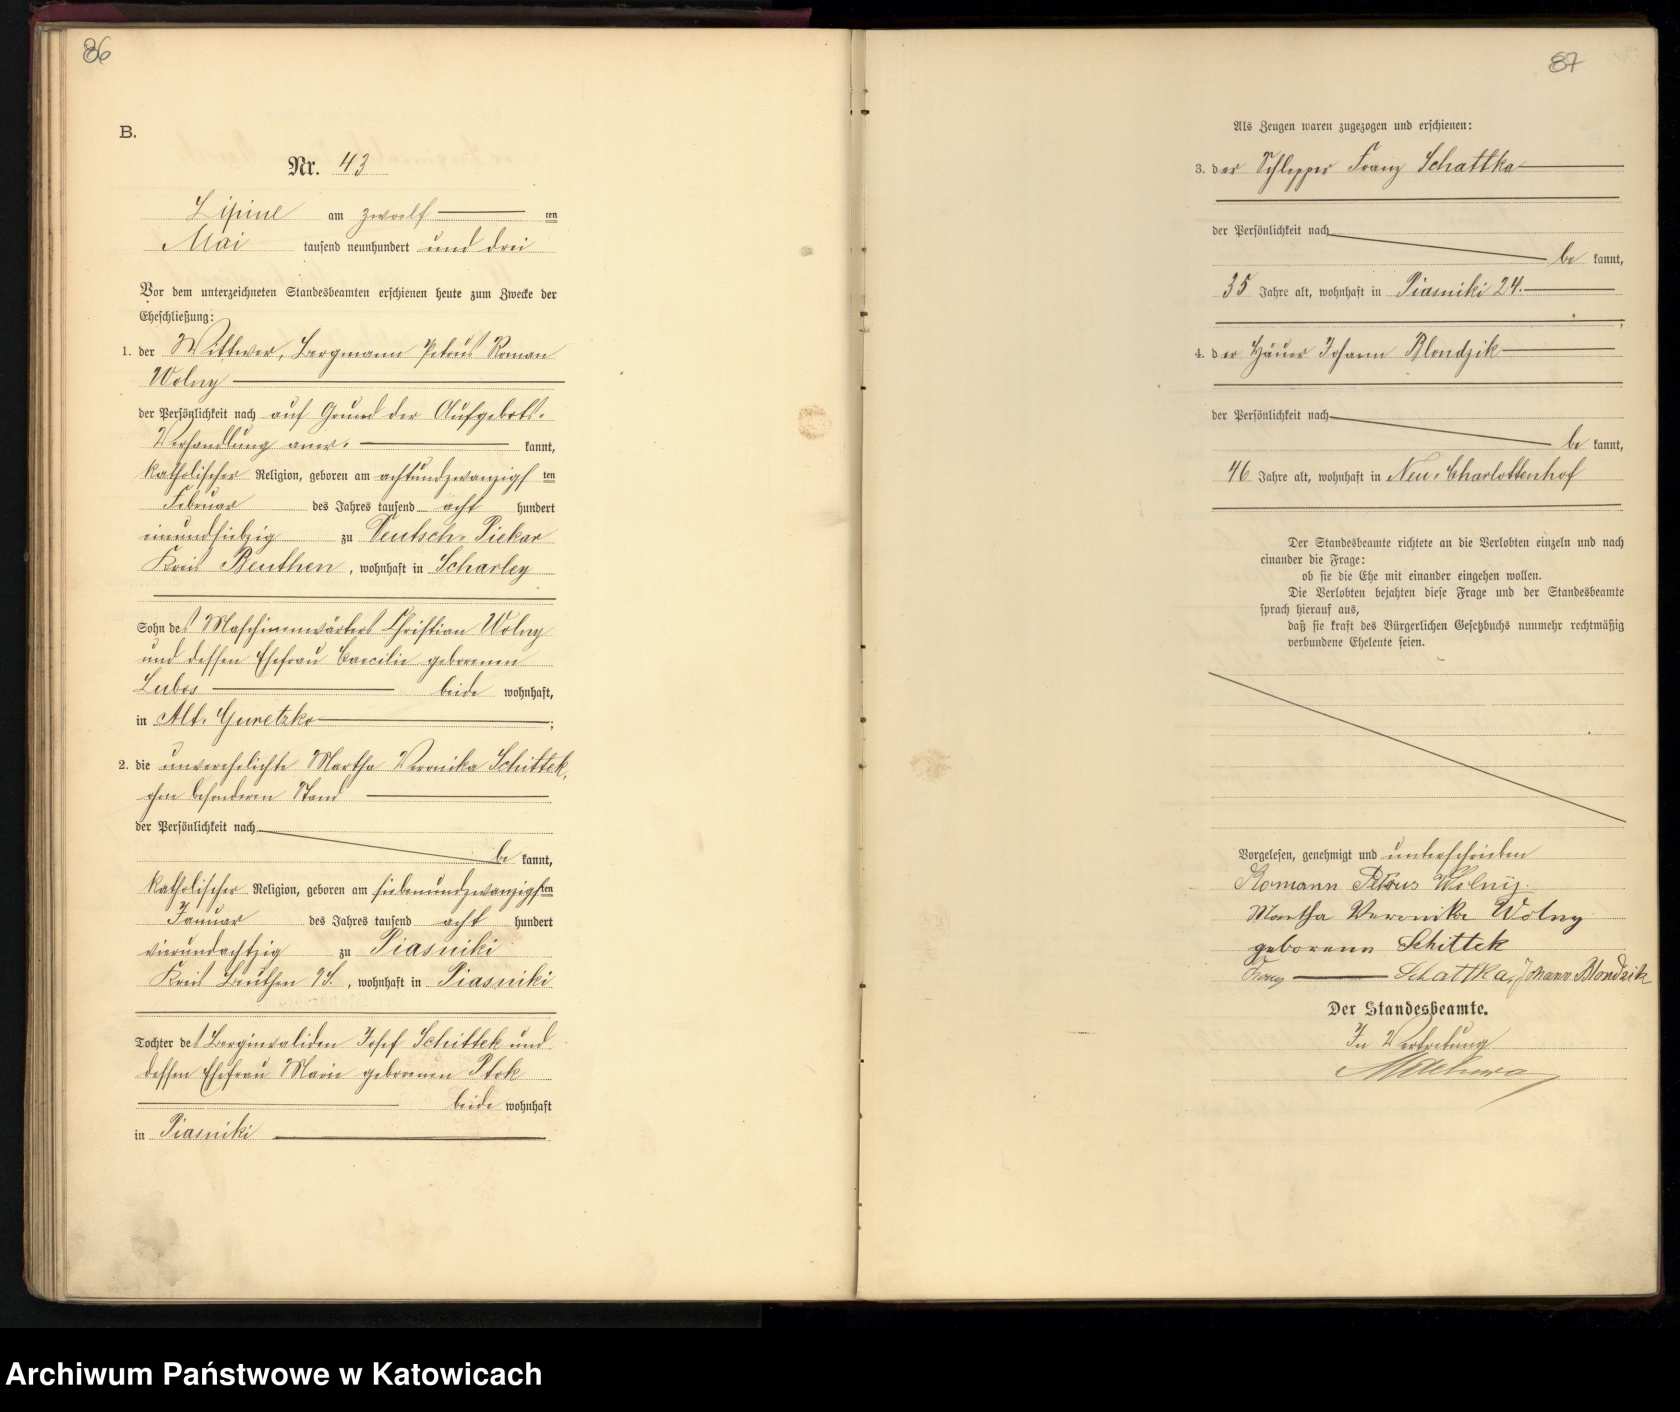 86
B.
Nr. 43
Lipine am zwoelf ten
Mai tausend neunhundert und drei
Vor dem unterzeichneten Standesbeamten erschienen heute zum Zwecke der
Eheschließung:
1. der Wittwer, Bergmann Petrus Roman
Wolny
der Persönlichkeit nach auf Grund der Aufgebots-
Verhandlung aner- kannt,
katholischer Religion, geboren am achtundzwanzigs ten
Februar des Jahres tausend acht hundert
einundsiebzig zu Deutsch-Piekar
Kreis Beuthen, wohnhaft in Scharley
Sohn des Maschinenwärters Christian Wolny
und dessen Ehefrau Caecilie geborenen
Lubos beide wohnhaft,
in Alt-Guretzko;
2. die unverehelichte Martha Veronika Schittek,
ohne besonderen Stand
der Persönlichkeit nach
be kannt,
katholischer Religion, geboren am siebenundzwanzigsten
Januar des Jahres tausend acht hundert
vierundachtzig zu Piasniki
Kreis Beuthen O/S., wohnhaft in Piasniki
Tochter des Berginvaliden Josef Schittek und
dessen Ehefrau Marie geborenen Ptok
beide wohnhaft
in Piasniki
87
Als Zeugen waren zugezogen und erschienen:
3. der Schlepper Franz Schattka
der Persönlichkeit nach
be kannt,
35 Jahre alt, wohnhaft in Piasniki 24.
4. der Häuer Johann Blondzik
der Persönlichkeit nach
be kannt,
46 Jahre alt, wohnhaft in Neu-Charlottenhof
Der Standesbeamte richtete an die Verlobten einzeln und nach
einander die Frage:
ob sie die Ehe mit einander eingehen wollen.
Die Verlobten bejahten diese Frage und der Standesbeamte
sprach hierauf aus,
daß sie kraft des Bürgerlichen Gesetzbuchs nunmehr rechtmäßig
verbundene Eheleute seien.
Vorgelesen, genehmigt und unterschrieben
Romann Petrus Wolny.
Martha Veronika Wolny
geborenn Schittek
Franz Schattka, Johann Blondzik
Der Standesbeamte.
In Vertretung
Archiwum Państwowe w Katowicach